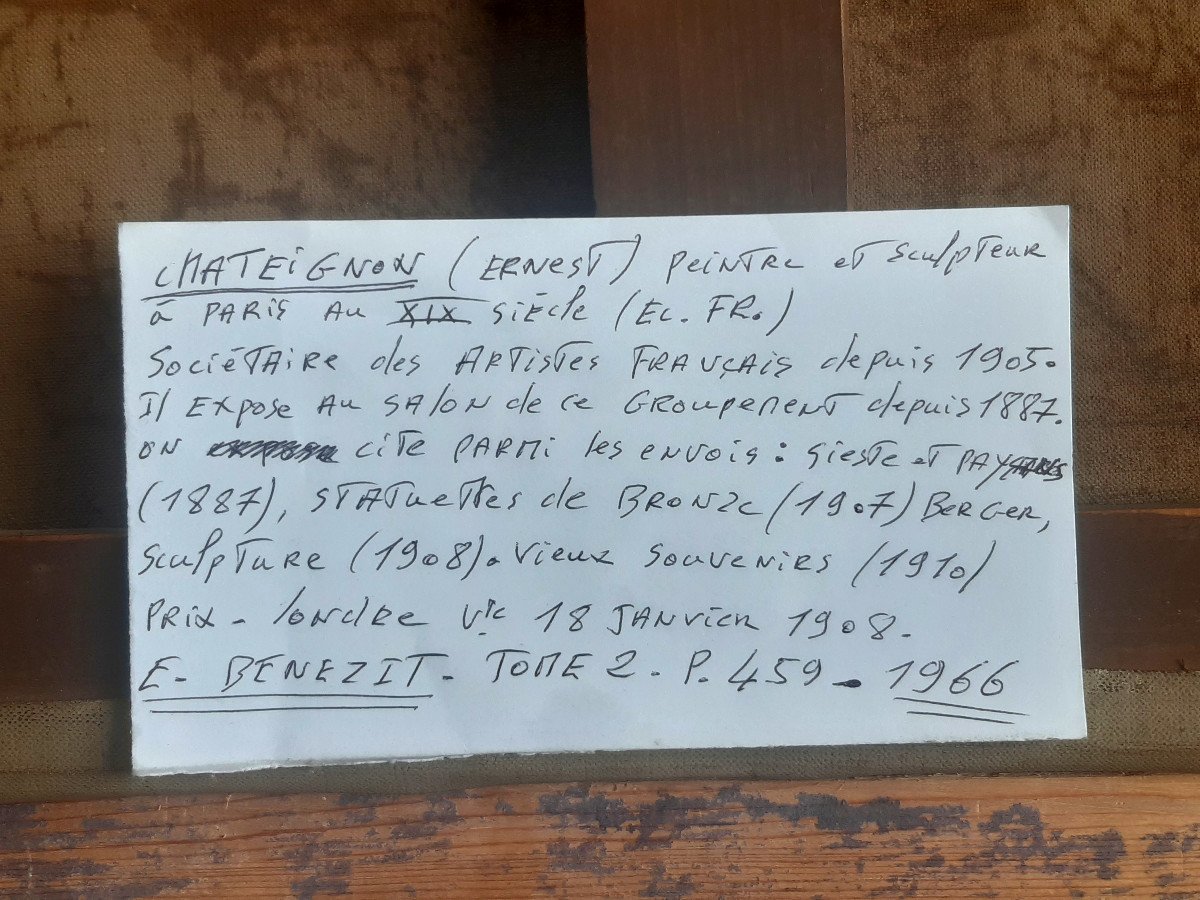 CHATEIGNON (ERNEST) Peintre et sculpteur
à PARIS AU XIX SIÈCLE (EC. FR.)
SOCIÉTAIRE des ARTISTES FRANÇAIS depuis 1905.
Il EXPOSE AU SALON de ce GROUPEMENT depuis 1887.
ON CITE PARMI les envois : Sieste et
(1887), STATUETTES de BRONZE (1907) BERGER,
Sculpture (1908). Vieux Souvenirs (1910)
PRIX - londre Vte 18 JANVIER 1908.
E. BENEZIT. TOME 2. P. 459 - 1966